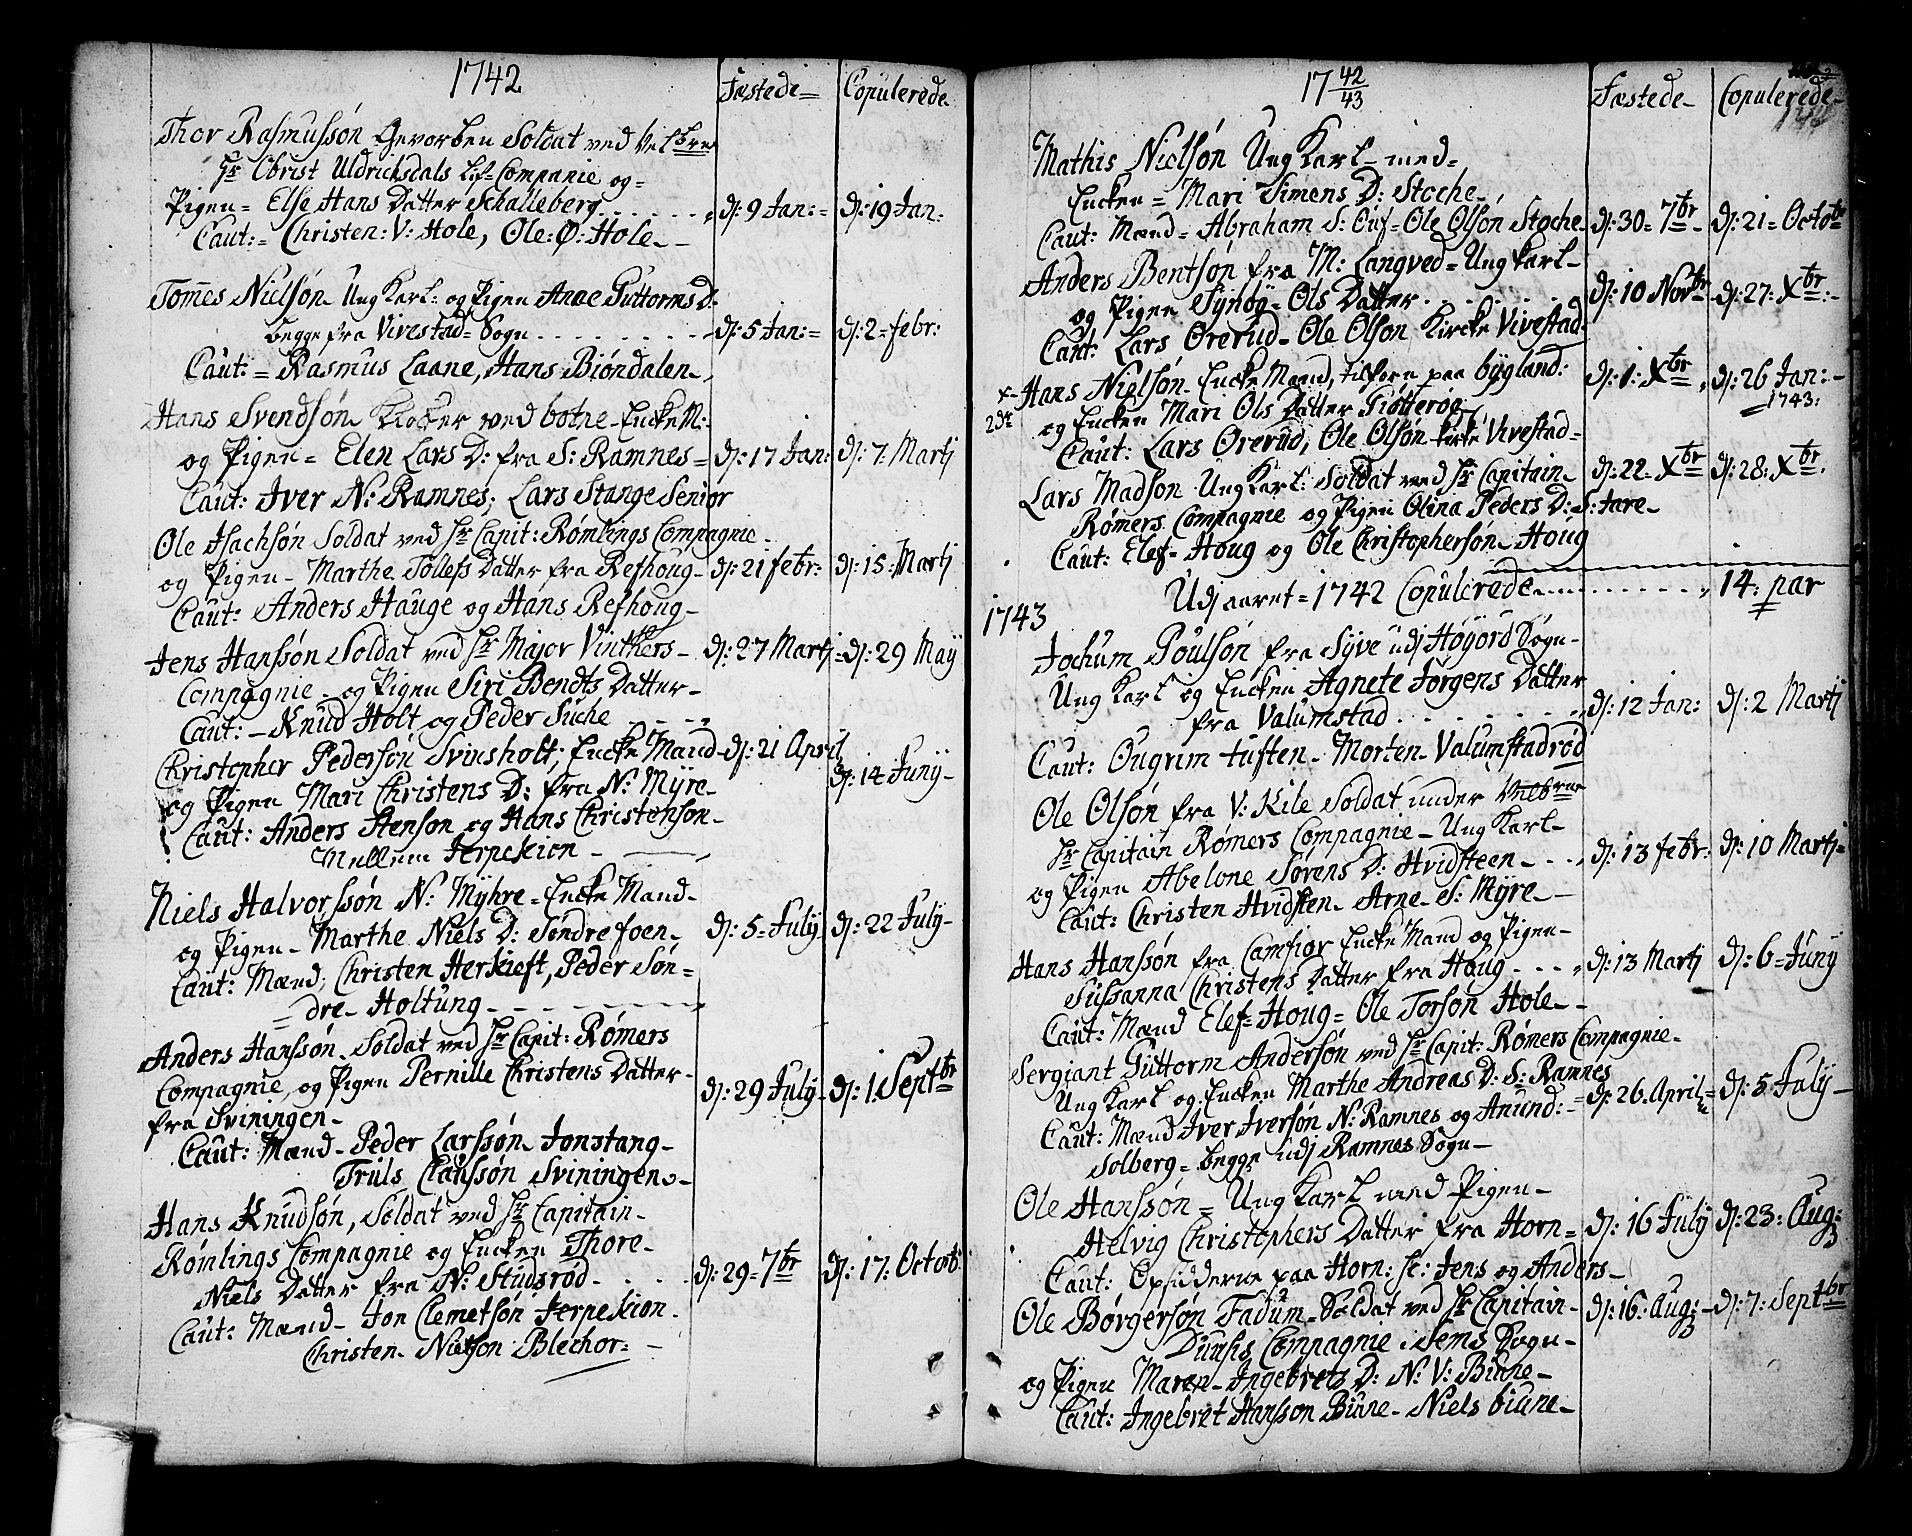 1742
Fæstede= Copulerede
Thor Rasmussøn Gevorben Soldat ved Velbrne
Hr Christ Uldrichsdals Lif=Companie og=
Pigen= Else Hans Datter Schalleberg. . . . . . dj: 9 Jan:= dj: 19 Jan:
Caut:= Christen: V: Hole, Ole: Ø: Hole_
Tom̄es Nielsøn_ Ung Karl: og Pigen Anne Guttorms D:
begge fra Vivestad= Sogn . . . . . . . . dj: 5 Jan:= dj: 2= febr:
Caut:= Rasmus Laane, Hans Biøndalen_
Hans Svendsøn_ Klocker ved botne_ Encke M:
og Pigen= Elen Lars D: fra S: Ramnes= dj: 17 Jan: dj: 7: Martj
Caut: Iver N: Ramnes; Lars Stange Senior
Ole Isachsøn Soldat ved Hr Capit: Rømlings Compagnie_
og Pigen_ Marthe Tollefs Datter fra Refhoug_ dj: 21 febr: dj: 15: Martj
Caut: Anders Hauge og Hans Refhoug_
Jens Hanssøn Soldat ved Hr Major Vinthers_ dj: 27 Martj= dj: 29 Maÿ
Compagnie_ og Pigen Siri Bendts Datter_
Caut:_ Knud Holt og Peder Suche
Christopher Pedersøn Svinsholt; Encke Mand_ dj: 21 April
og Pigen Mari Christens D: fra N: Mÿre_ dj: 14 Junÿ_
Caut: Anders Stenson og Hans Christenson_
Mellem Jerpekion_
Niels Halvorssøn N: Mÿhre= Encke Mand_
og Pigen_ Marthe Niels D: Søndre foen_ dj: 5= Julÿ dj: 22 Julÿ_
Caut: Mænd; Christen Herkieft, Peder Søn=
=dre_ Holtung_
Anders Hanssøn_ Soldat ved Hr Capit: Rømers
Compagnie, og Pigen Pernille Christens Datter_ dj: 29 Julÿ_ dj: 1. Septbr
fra Sviningen_
Caut: Mænd_ Peder Larssøn_ Jonstang_
Truls Clausson Sviningen_
Hans Knudsøn, Soldat ved Hr Capitain_
Rømlings Compagnie og Encken Thore_
Niels Datter fra N: Studsrød_ . . . dj: 29= 7br dj: 17: Octob
Caut: Mænd_ Jon Clemetsøn Jerpekion_
Christen_ Nielson Blechor:=_
17 42/43
Fæstede_ Copulerede_
Mathis Nielsøn Ung Karl_ med=
Encken= Mari Simens D: Stoche_
Caut: Mænd= Abraham S: Euf= Ole Olsøn Stoche_ dj: 30= 7br_ dj: 21= Octobr
Anders Bentsøn fra M: Langved= Ung karl_
og Pigen Synøy= Ols Datter . . . . . dj: 10 Novbr_ dj: 27: Xbr:_
Caut: Lars Orerud_ Ole Olson Kircke Vivestad_
x_ Hans Nielsøn_ Encke Mand, tilforn paa bÿgland: dj: 1: Xbr dj: 26 Jan:_
1743:
og Encken Mari Ols Datter Giøtterog_
Caut: Lars Orerud, Ole Olsøn_ kirke Vivestad=
Lars Madson Ung Karl: Soldat ved Hr Capitain_ dj: 22= Xbr dj: 28: Xbr.
Rømers Compagnie og Pigen Olina Peders D: S: fare_
Caut: Elef= Houg og Ole Christophersøn_ Houg
Udj aaret= 1742 Copulerede . . . . . . . . 14: par
1743
Jochum Poulsøn fra Syve udj Høÿord Sogn_
Ung Karl og Encken Agnete Jørgens Datter
fra Valumstad . . . . . . . dj: 12 Jan: dj: 2 Martj
Caut: Ougrim tuften_ Morten_ Valumstadrød
Ole Olsøn fra V: Kile Soldat under Velbrne
Hr Capitain Rømers Compagnie_ Ung Karl_
og Pigen Abelone Sørens D: Hvidsteen_ . . . dj: 13 febr: dj: 10 Martj=
Caut: Christen Hvidsten_ Arne_ S: Mÿre_
Hans Hanssøn fra Camfior Encke Mand og Pigen_
Sussanna Christens Datter fra Houg . . . . dj: 13 Martj dj: 6= Junÿ
Caut: Mænd Elef= Houg= Ole Torson Hole_
Sergiant Guttorm Andersøn ved Hr Capit: Rømers Compagnie_
Ung Karl og Encken Marthe Andreas D: S: Ramnes dj: 26. April= dj: 5 Julÿ_
Caut: Mænd Iver Iversøn N: Ramnes og Anund:_
Solberg= begge udj Ramnes Sogn_
Ole Hanssøn= Ung Karl med Pigen_
Helvig Christophers Datter fra Horn= dj: 16 Julÿ dj: 23: Aug:
Caut: Opsidderne paa Horn: sc: Jens og Anders_
Ole Børgersøn Fadum_ Soldat ved Hr Capitain_ dj: 16: Aug:_ dj: 7: Septbr
Dunchs Compagnie i Sems Sogn_
og Pigen Maren_ Ingebrets D: N: V: Biune_
Caut: Ingebret Hansson Biune_ Niels biune_